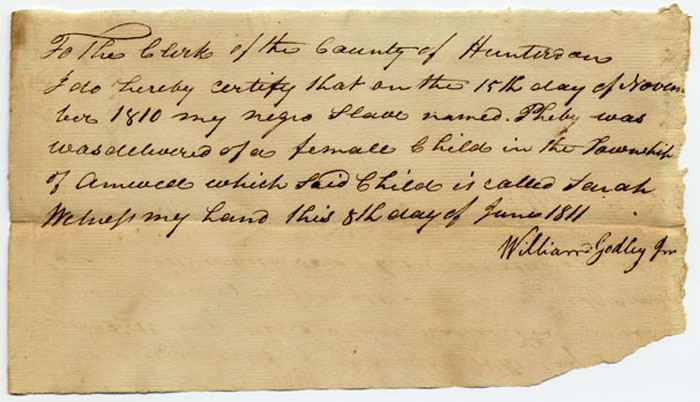 To The Clerk of the County of Hunterdon
I do hereby certify that on the 15th day of Novem
ber 1810 my negro Slave named Pheby was
was delivered of a female Child in the Township
of Amwell which Said Child is called Sarah
Witness my hand this 8th day of June 1811
William Godley Jnr